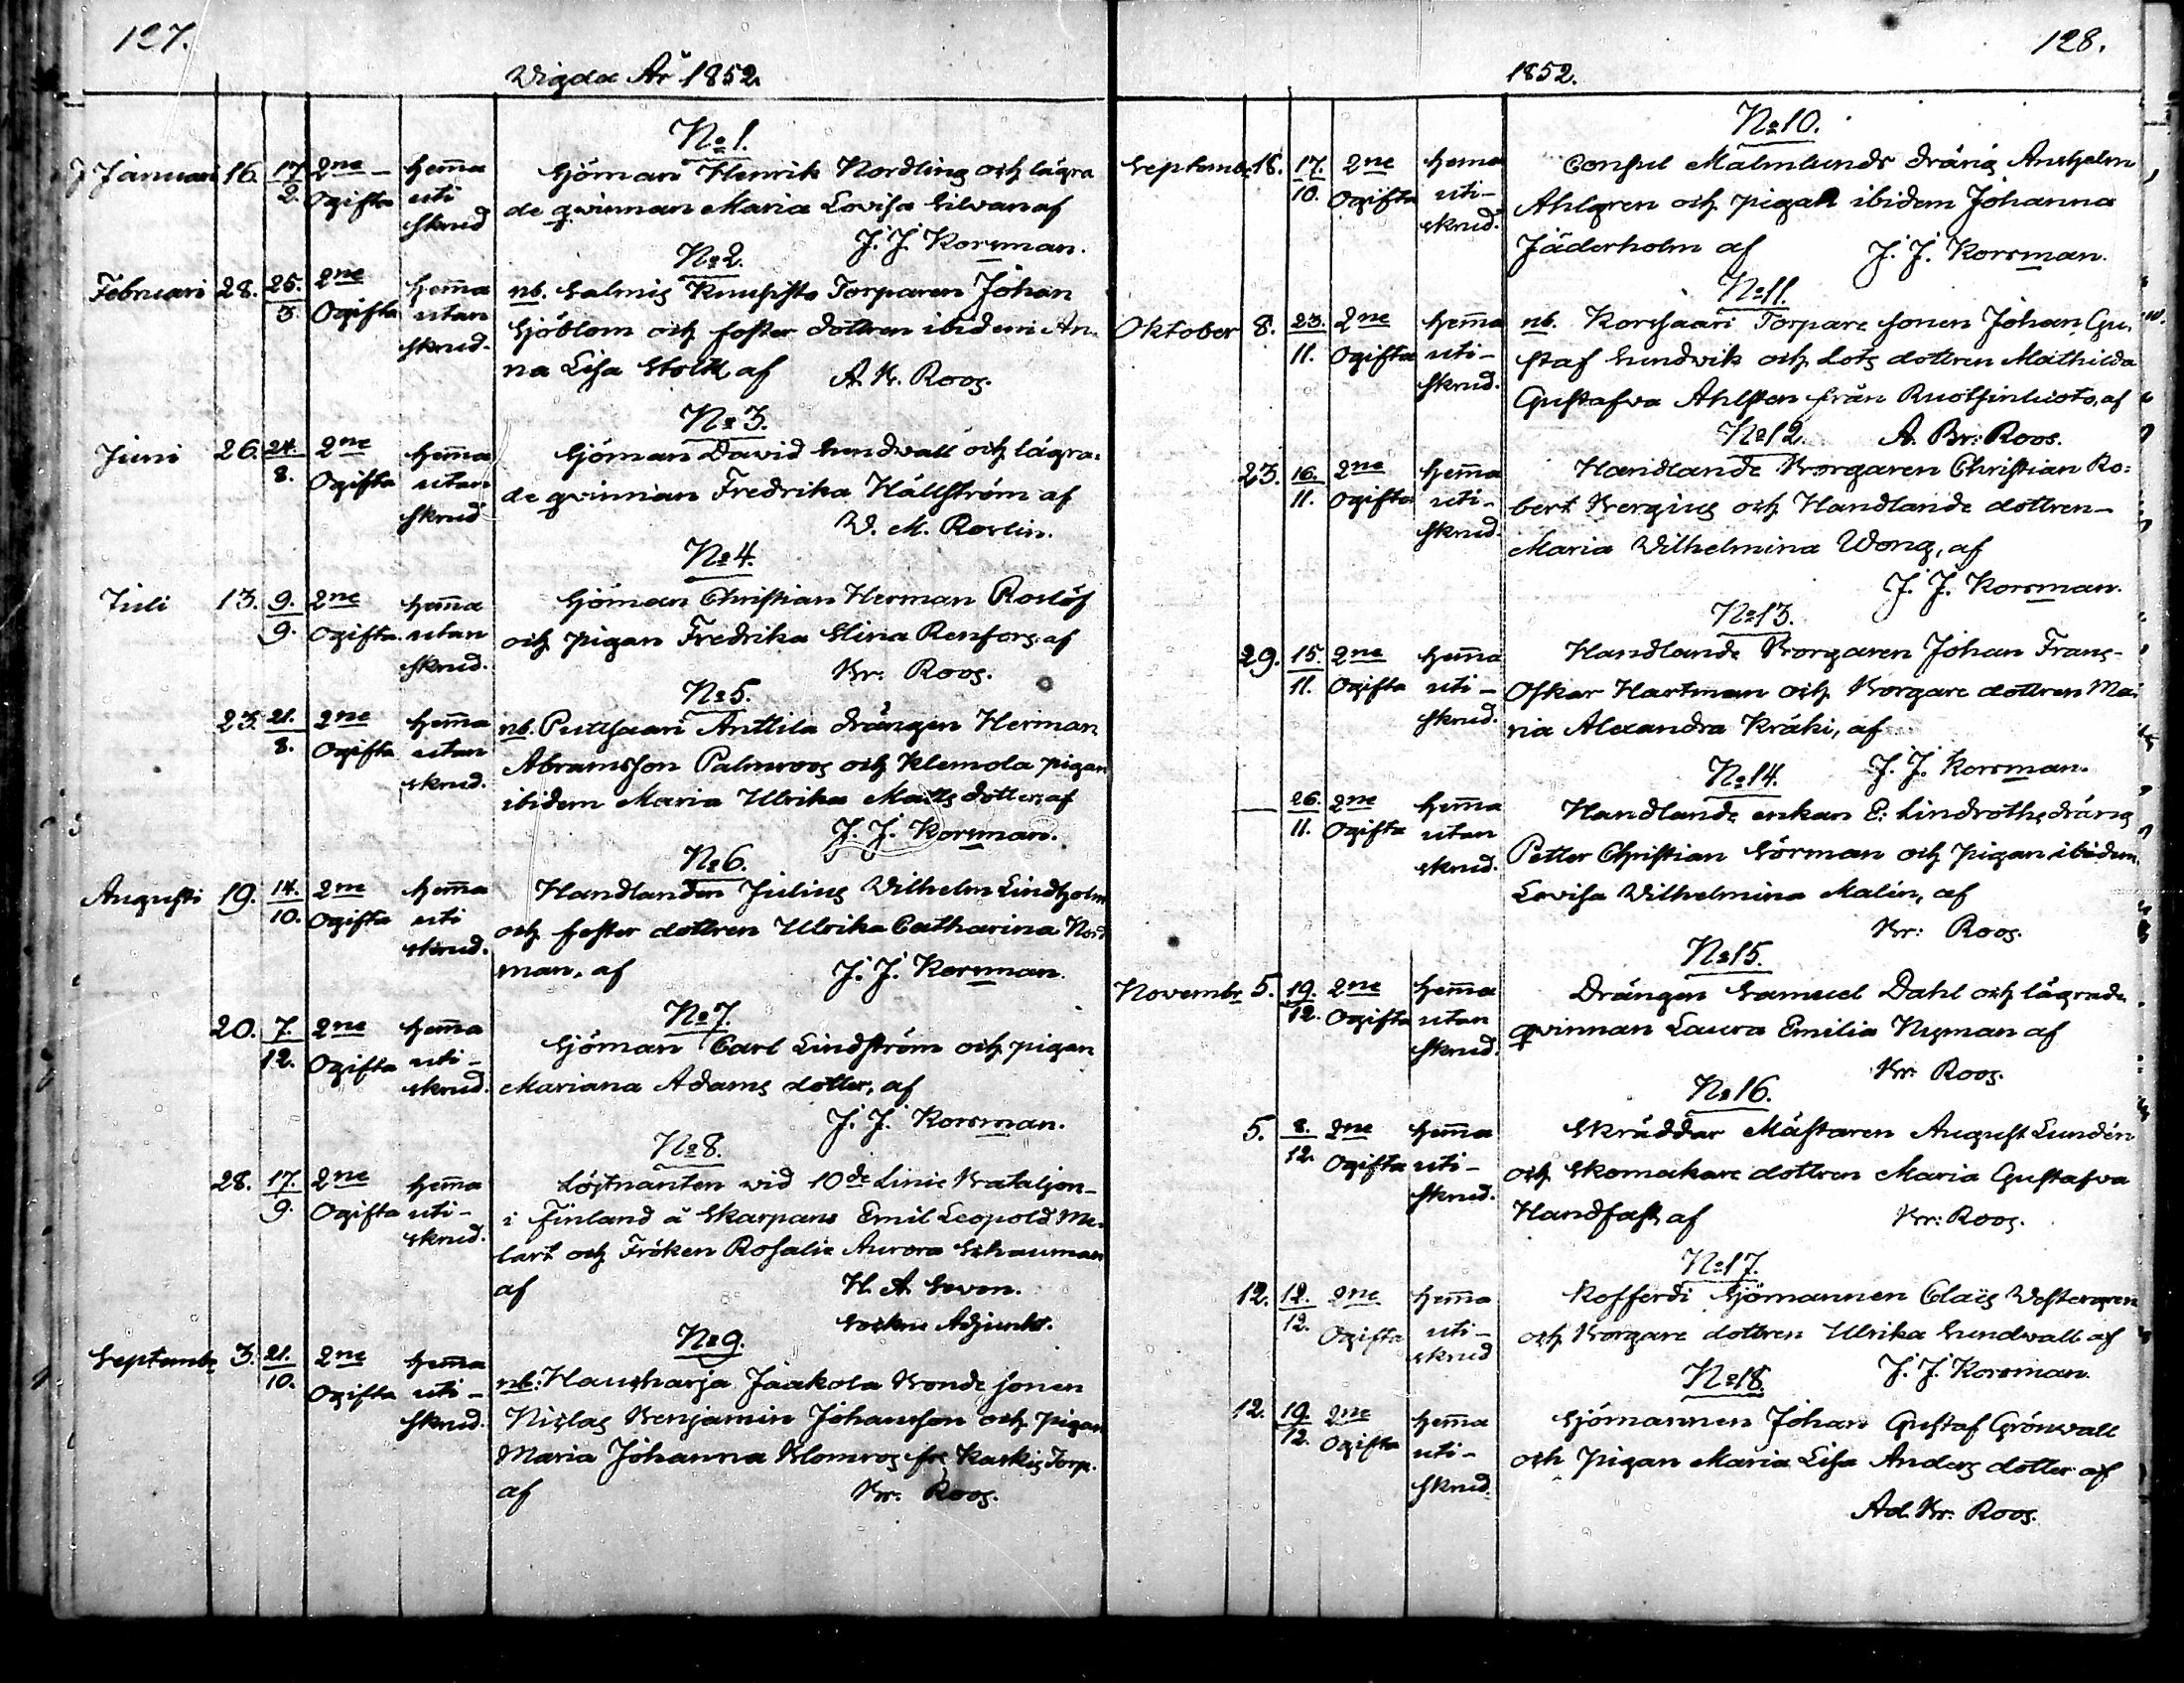 127.
Wigda År 1852.
Januari 16. 17/2. 2ne Ogifta hema uti skrud
No 1.
Sjöman Henrik Nordling och lägra
de qwinnan Maria Lovisa Silvan af
J. J. Korsman.
Februari 28. 25./3. 2ne Ogifta hema utan skrud.
No 2.
nb. Salmis Torparen Johan
Sjöblom och foster dottren ibidem An-
na Lisa Stolt, af A. Br. Roos.
Juni 26. 24./8. 2ne Ogifta hema utan skrud
No 3.
Sjöman David Sundvall och lägra-
de qvinnan Fredrika Hällström af
W. M. Roslin.
Juli 13. 9./9. 2ne Ogifta hema utan skrud.
No 4.
Sjöman Christian Herman Roslöf
och pigan Fredrika Stina Renfors, af
Br: Roos.
23. 21./8. 2ne Ogifta hema utan skrud.
No 5.
nb. Puttsaari Anttila drängen Herman
Abramsson Palmroos och Klemola pigan
ibidem Maria Ulrika Matts dotter, af
J. J. Korsman.
Augusti 19. 14./10. 2ne Ogifta hema uti skrud.
No 6.
Handlanden Julius Wilhelm Lindholm
och foster dottren Ulrika Catharina Nord
man, af J. J. Korsman.
20. 7./12. 2ne Ogifta hema uti- skrud.
No 7.
Sjöman Carl Lindström och pigan
Mariana Adams dotter, af
J. J. Korsman.
28. 17./9. 2ne Ogifta uti- hema skrud.
No 8.
Löjtnanten wid 10de Linie Bataljon-
i Finland å Skarpans Emil Leopold Me-
lart och Fröken Rosalie Aurora Schauman
af H. A. Seven.
Sockne Adjunkt.
Septembr 3. 21./10. 2ne Ogifta hema uti- skrud.
No 9.
nb: Hausharja Jaakola Bonde sonen
Niclas Benjamin Johansson och pigan
Maria Johanna Blomros frs Karkis Torp.
af Br: Roos.
128.
1852.
Septembr 16. 17./10. 2ne Ogifta hema uti- skrud.
No 10.
Consul Malmlunds dräng Anshelm
Ahlgren och pigan ibidem Johanna
Jäderholm af J. J. Korsman.
Oktober 8. 23./11. 2ne Ogifta hema uti- skrud.
No 11.
nb. Korsaari Torpare sonen Johan Gu-
staf Sundvik och Lots dottren Mathilda
Gustafva Ahlsten från Ruotsinluoto, af
A. Br: Roos.
23. 16./11. 2ne Ogifta hema uti- skrud.
No 12.
Handlande Borgaren Christian Ro:
bert Bergius och Handlande dottren-
Maria Wilhelmina Wong, af
J. J. Korsman.
29. 15./11. 2ne Ogifta hema uti- skrud.
No 13.
Handlande Borgaren Johan Frans-
Oskar Hartman och Borgare dottren Ma-
ria Alexandra Kräki, af
J. J. Korsman.
— 26./11. 2ne Ogifta hema utan skrud.
No 14.
Handlande enkan E: Lindroths dräng
Petter Christian Sörman och pigan ibidem
Lovisa Wilhelmina Malin, af
Br: Roos.
Novembr 5. 19./12. 2ne Ogifta hema utan skrud.
No 15.
Drängen Samuel Dahl och lägrade
qvinnan Laura Emilia Nyman af
Br: Roos.
5. 8./12. 2ne Ogifta hema uti- skrud.
No 16.
Skräddar Mästaren August Lundén
och Skomakare dottren Maria Gustafva
Handfast, af Br: Roos.
12. 12./12. 2ne Ogifta hema uti- skrud
No 17.
Kofferdi Sjömannen Claës Westergren
och Borgare dottren Ulrika Sundvall af
J. J. Korsman.
12. 19./12. 2ne Ogifta hema uti- skrud.
No 18.
Sjömannen Johan Gustaf Grönvall
och Pigan Maria Lisa Anders dotter af
Ad. Br: Roos.